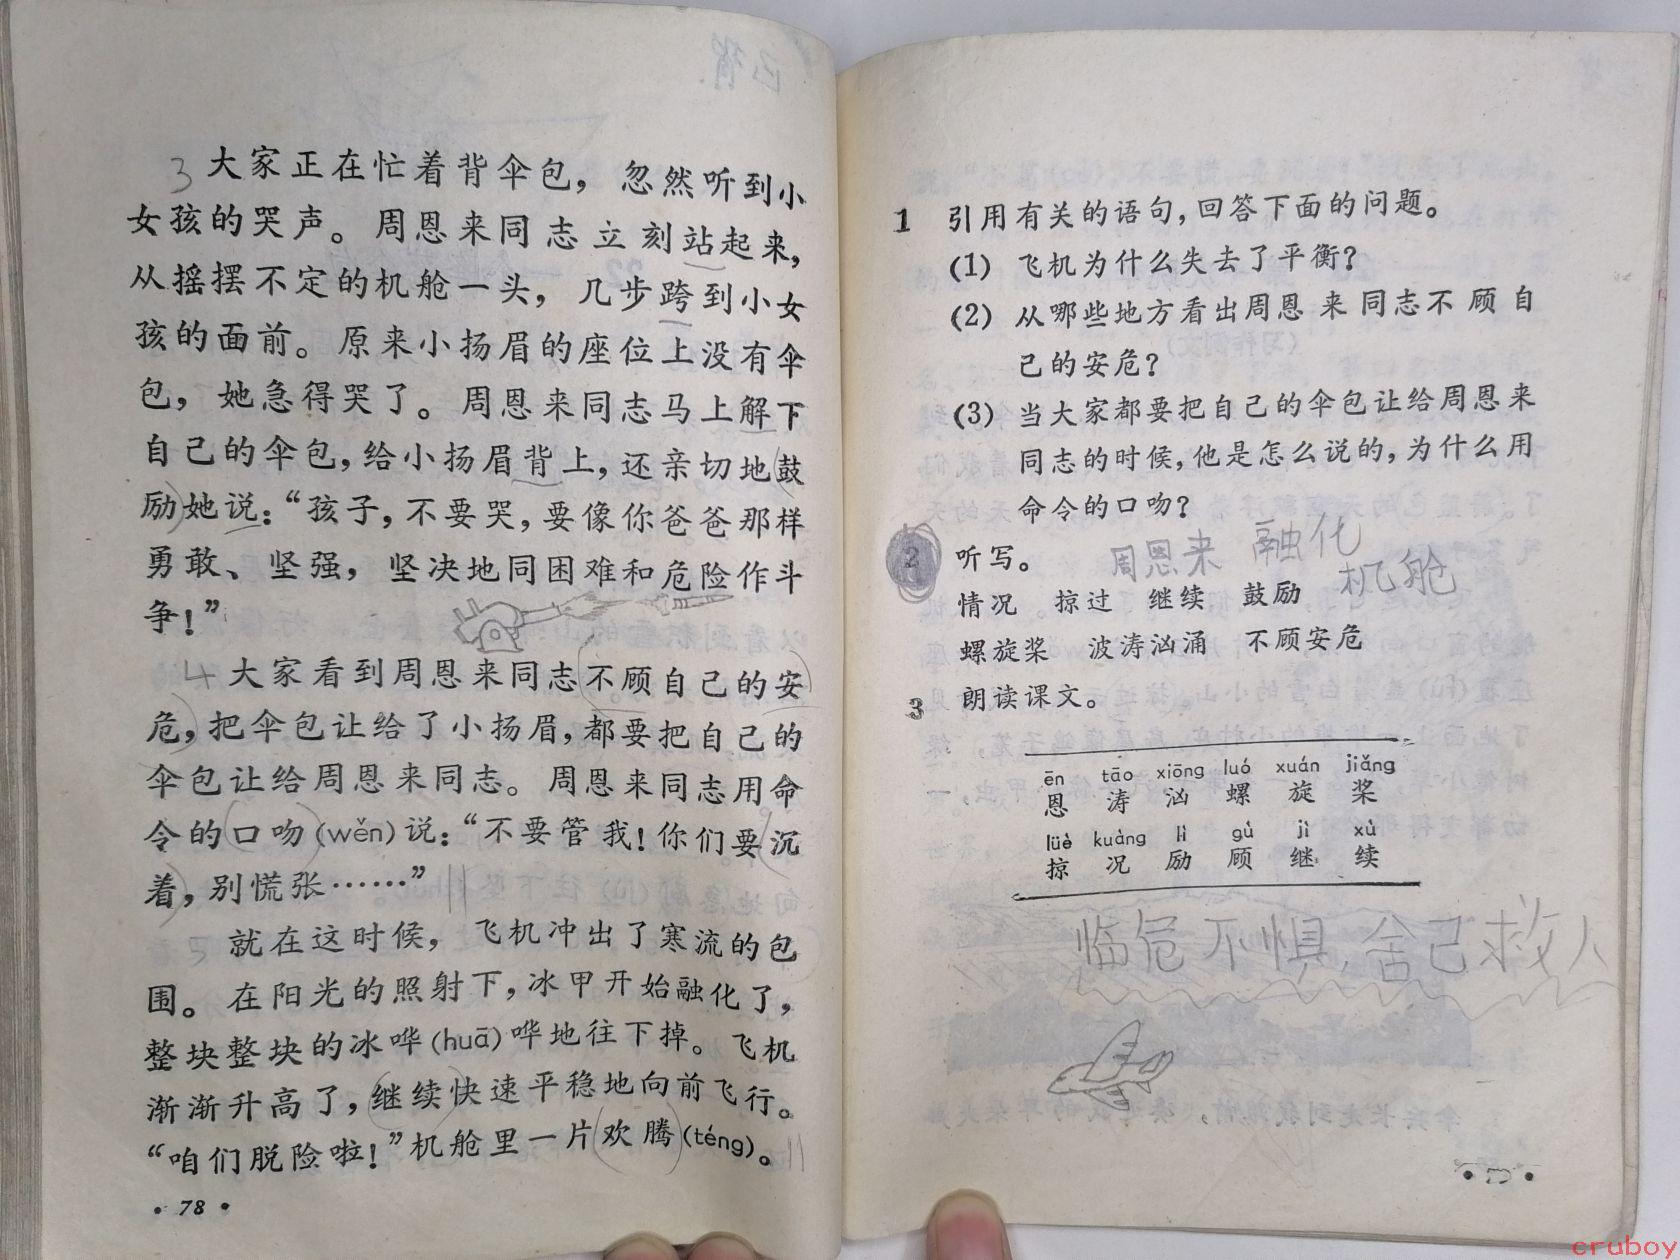 已背.
3 大家正在忙着背伞包，忽然听到小
女孩的哭声。周恩来同志立刻站起来，
从摇摆不定的机舱一头，几步跨到小女
孩的面前。原来小扬眉的座位上没有伞
包，她急得哭了。周恩来同志马上解下
自己的伞包，给小扬眉背上，还亲切地鼓
励她说：“孩子，不要哭，要像你爸爸那样
勇敢、坚强，坚决地同困难和危险作斗
争！”
4 大家看到周恩来同志不顾自己的安
危，把伞包让给了小扬眉，都要把自己的
伞包让给周恩来同志。周恩来同志用命
令的口吻(wěn)说：“不要管我！你们要沉
着，别慌张……”
5 就在这时候，飞机冲出了寒流的包
围。在阳光的照射下，冰甲开始融化了，
整块整块的冰哗(huā)哗地往下掉。飞机
渐渐升高了，继续快速平稳地向前飞行。
“咱们脱险啦！”机舱里一片欢腾(téng)。
• 78 •
1 引用有关的语句，回答下面的问题。
(1) 飞机为什么失去了平衡？
(2) 从哪些地方看出周恩来同志不顾自
己的安危？
(3) 当大家都要把自己的伞包让给周恩来
同志的时候，他是怎么说的，为什么用
命令的口吻？
2 听写。 周恩来 融化
机舱
情况 掠过 继续 鼓励
螺旋桨 波涛汹涌 不顾安危
3 朗读课文。
ēn tāo xiōng luó xuán jiǎng
恩 涛 汹 螺 旋 桨
lüè kuàng lì gù jì xù
掠 况 励 顾 继 续
临危不惧，舍己救人
cruboy